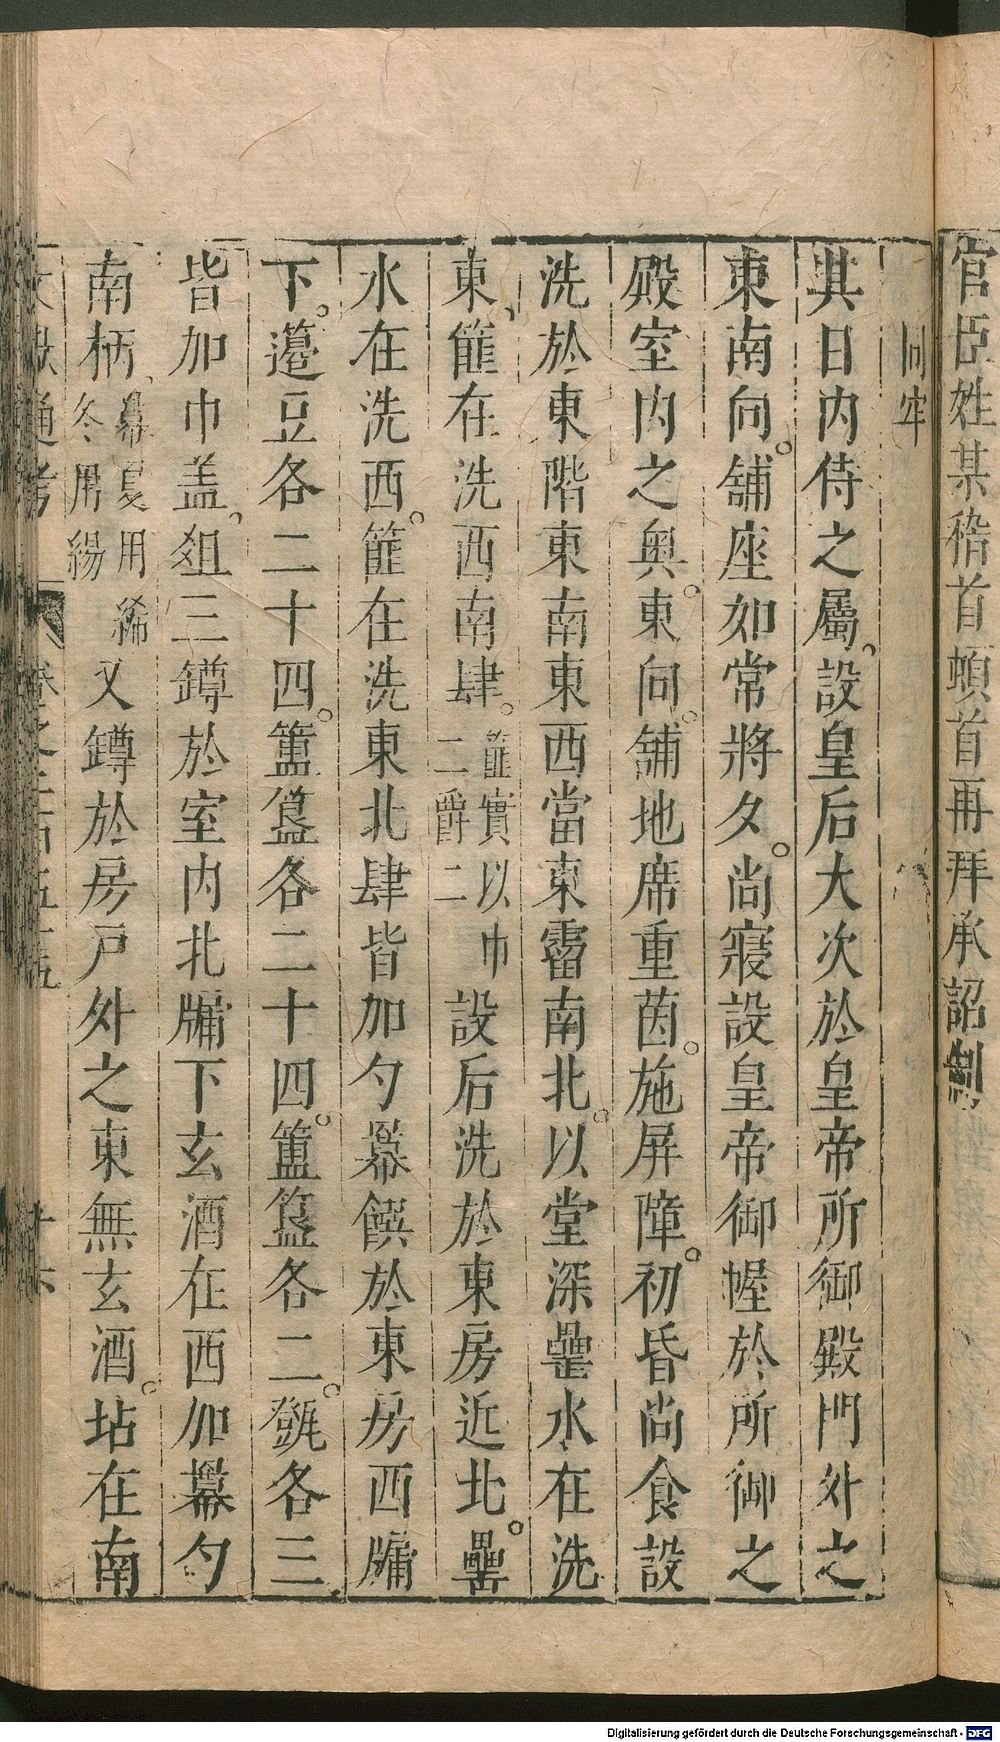 官臣姓某稽首頓首再拜承詔制
同牢
其日内侍之屬設皇后大次於皇帝所御殿門外之
東南向。舖座如常將夕。尚寢設皇帝御幄於所御之
殿室内之奥。東向。舖地席重茵。施屏障。初昏尚食設
洗於東階東南東西當東霤南北。以堂深罍水在洗
東、篚在洗西南肆。篚實以巾二爵二設后洗於東房近北。罍
水在洗西。篚在洗東北肆皆加勺冪饌於東房西牖
下。籩豆各二十四。簠簋各二十四。簠簋各二。㽅各三
皆加巾盖、俎三罇於室内北牖下玄酒在西加冪勺
南柄、冪夏用絺冬用緆又罇於房戸外之東無玄酒。坫在南
文獻通考 卷之二百五十五 十六
Digitalisierung gefördert durch die Deutsche Forschungsgemeinschaft - DFG